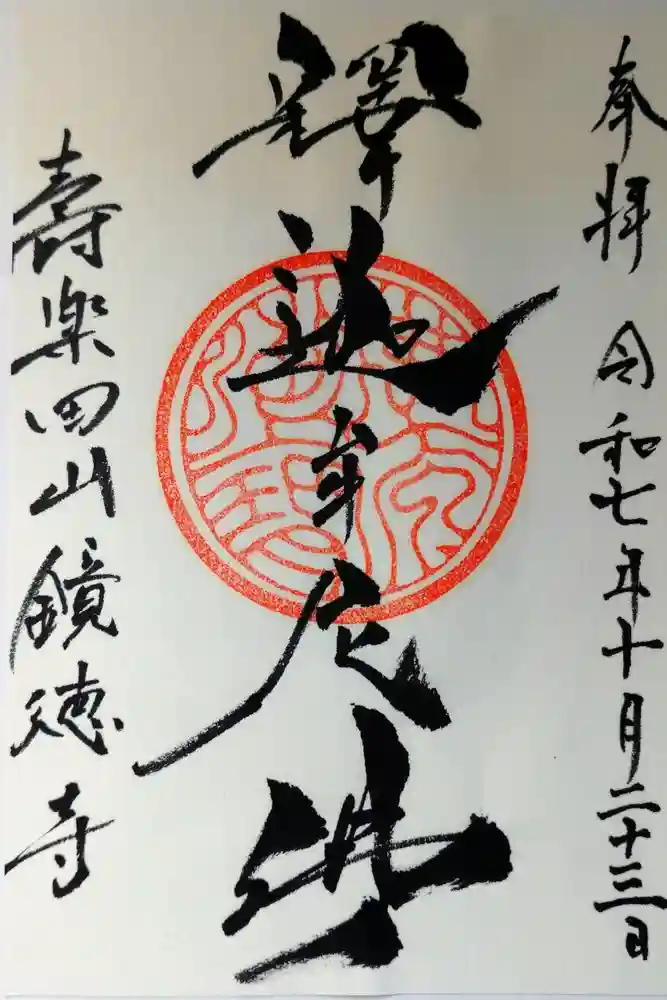 奉拝 令和七年十月二十三日
釋迦牟尼佛
壽楽田山鏡徳寺